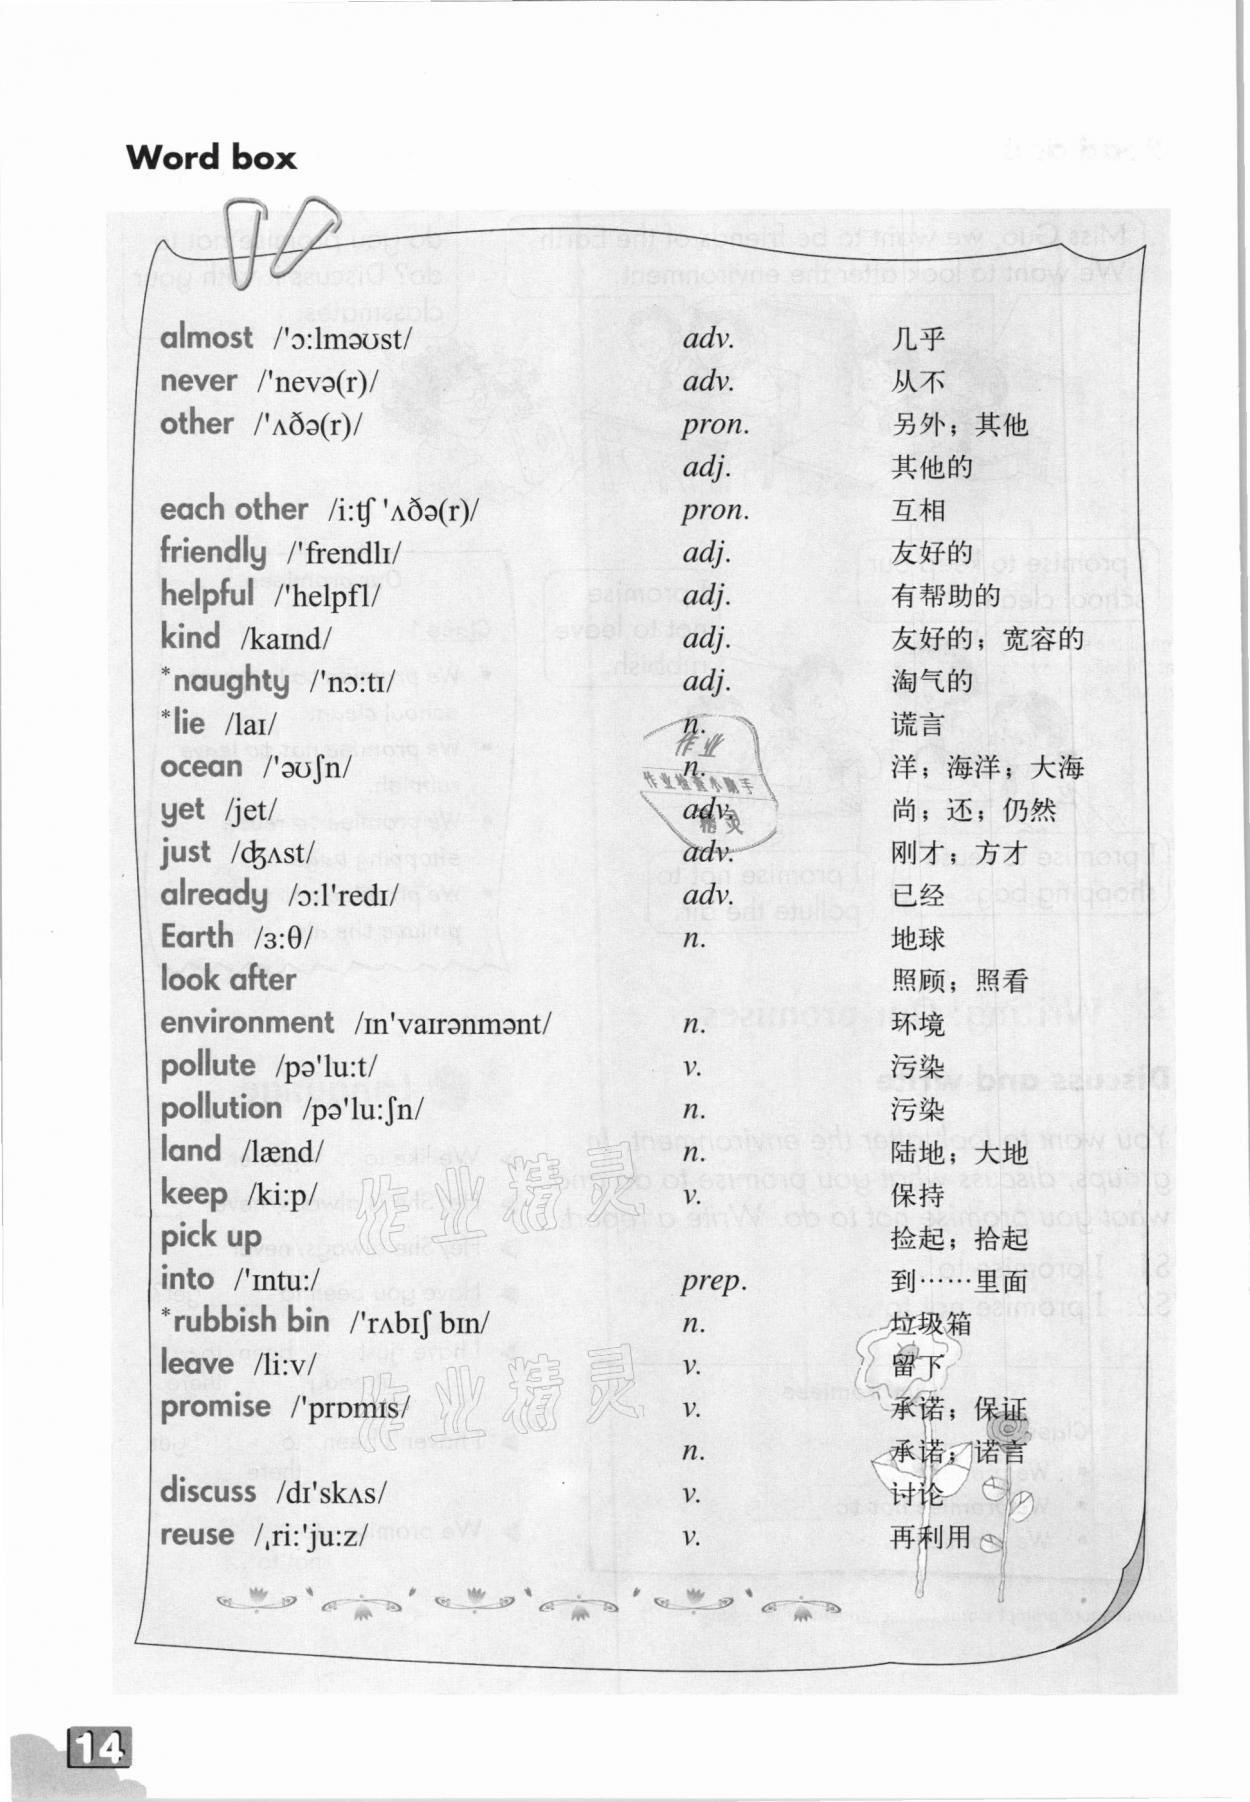 Word box
almost /'ɔ:lməʊst/ adv. 几乎
never /'nevə(r)/ adv. 从不
other /'ʌðə(r)/ pron. 另外；其他
adj. 其他的
each other /i:tʃ 'ʌðə(r)/ pron. 互相
friendly /'frendlɪ/ adj. 友好的
helpful /'helpfl/ adj. 有帮助的
kind /kaɪnd/ adj. 友好的；宽容的
*naughty /'nɔ:tɪ/ adj. 淘气的
*lie /laɪ/ n. 谎言
ocean /'əʊʃn/ n. 洋；海洋；大海
yet /jet/ adv. 尚；还；仍然
just /dʒʌst/ adv. 刚才；方才
already /ɔ:l'redɪ/ adv. 已经
Earth /ɜ:θ/ n. 地球
look after 照顾；照看
environment /ɪn'vaɪrənmənt/ n. 环境
pollute /pə'lu:t/ v. 污染
pollution /pə'lu:ʃn/ n. 污染
land /lænd/ n. 陆地；大地
keep /ki:p/ v. 保持
pick up 捡起；拾起
into /'ɪntu:/ prep. 到……里面
*rubbish bin /'rʌbɪʃ bɪn/ n. 垃圾箱
leave /li:v/ v. 留下
promise /'prɒmɪs/ v. 承诺；保证
n. 承诺；诺言
discuss /dɪ'skʌs/ v. 讨论
reuse /ˌri:'ju:z/ v. 再利用
作业
作业检查小助手
精灵
作业精灵
作业精灵
14